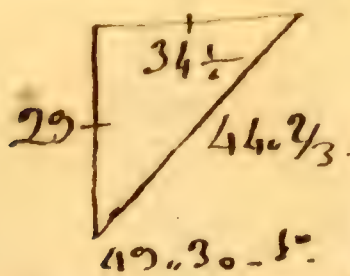 34 ÷
29
44. 2/3
49.. 30 - 1"